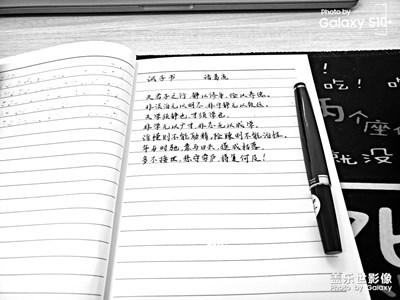 Photo by My
Galaxy S10+
诫子书 诸葛亮
夫君子之行,静以修身,俭以养德。
非淡泊无以明志,非宁静无以致远。
夫学须静也,才须学也。
非学无以广才,非志无以成学。
淫慢则不能励精,险躁则不能治性。
年与时驰,意与日去,遂成枯落,
多不接世,悲守穷庐,将复何及!
吃!吃
两个座
就没
盖乐世影像
Photo by Galaxy